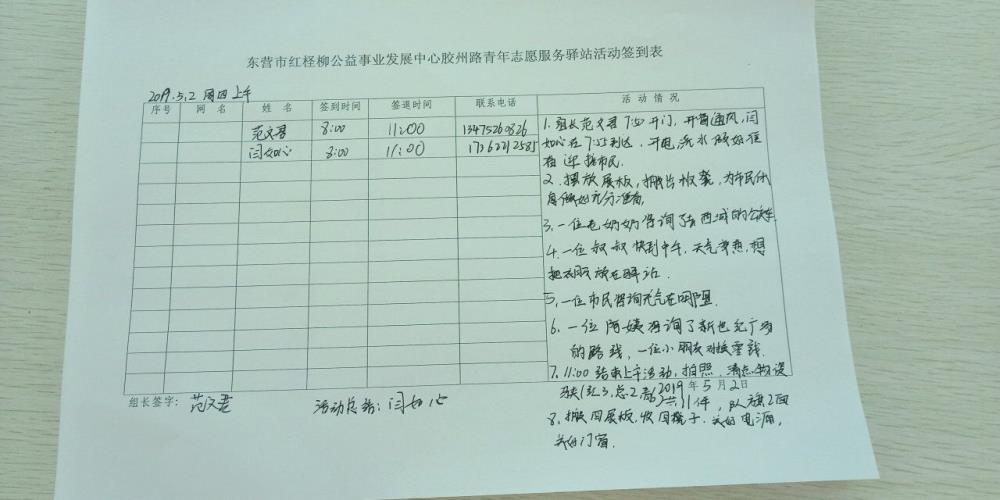 东营市红柽柳公益事业发展中心胶州路青年志愿服务驿站活动签到表
2019.5.2 周四上午
序号 网名 姓名 签到时间 签退时间 联系电话 活动情况
范文君 8:00 11:00 13475260826
闫如心 8:00 11:00 17262212585
1. 组长范文君 7:50 开门,开窗通风,闫
如心在7:55到达,开电,洗水做好准
备 迎接市民.
2. 摆放展板,搬出板凳,为市民休
息做好充分准备,
3. 一位老奶奶咨询了去西城的公交车
4. 一位叔叔快到中午,天气变热,想
把衣服放在驿站.
5. 一位市民咨询充气在哪里.
6. 一位阿姨咨询了新世纪广场
的路线,一位小朋友对换零钱.
7. 11:00 结束上午活动,拍照,清点物资
组长签字:范文君 活动总结:闫如心
2019 年 5 月 2 日
共11件,队旗2面
8. 搬回展板,收回凳子,关好电源,
关好门窗.